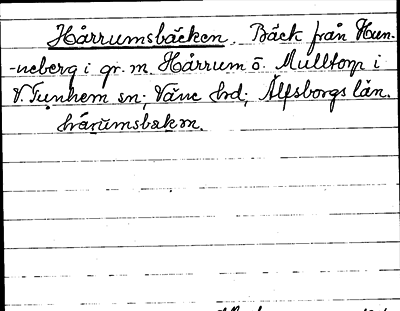 Hårrumsbäcken. Bäck från Hun-
-neberg i gr. m. Hårrum o. Mulltorp i
V. Tunhem sn; Väne hrd; Älfsborgs län.
hårumsbäkən.